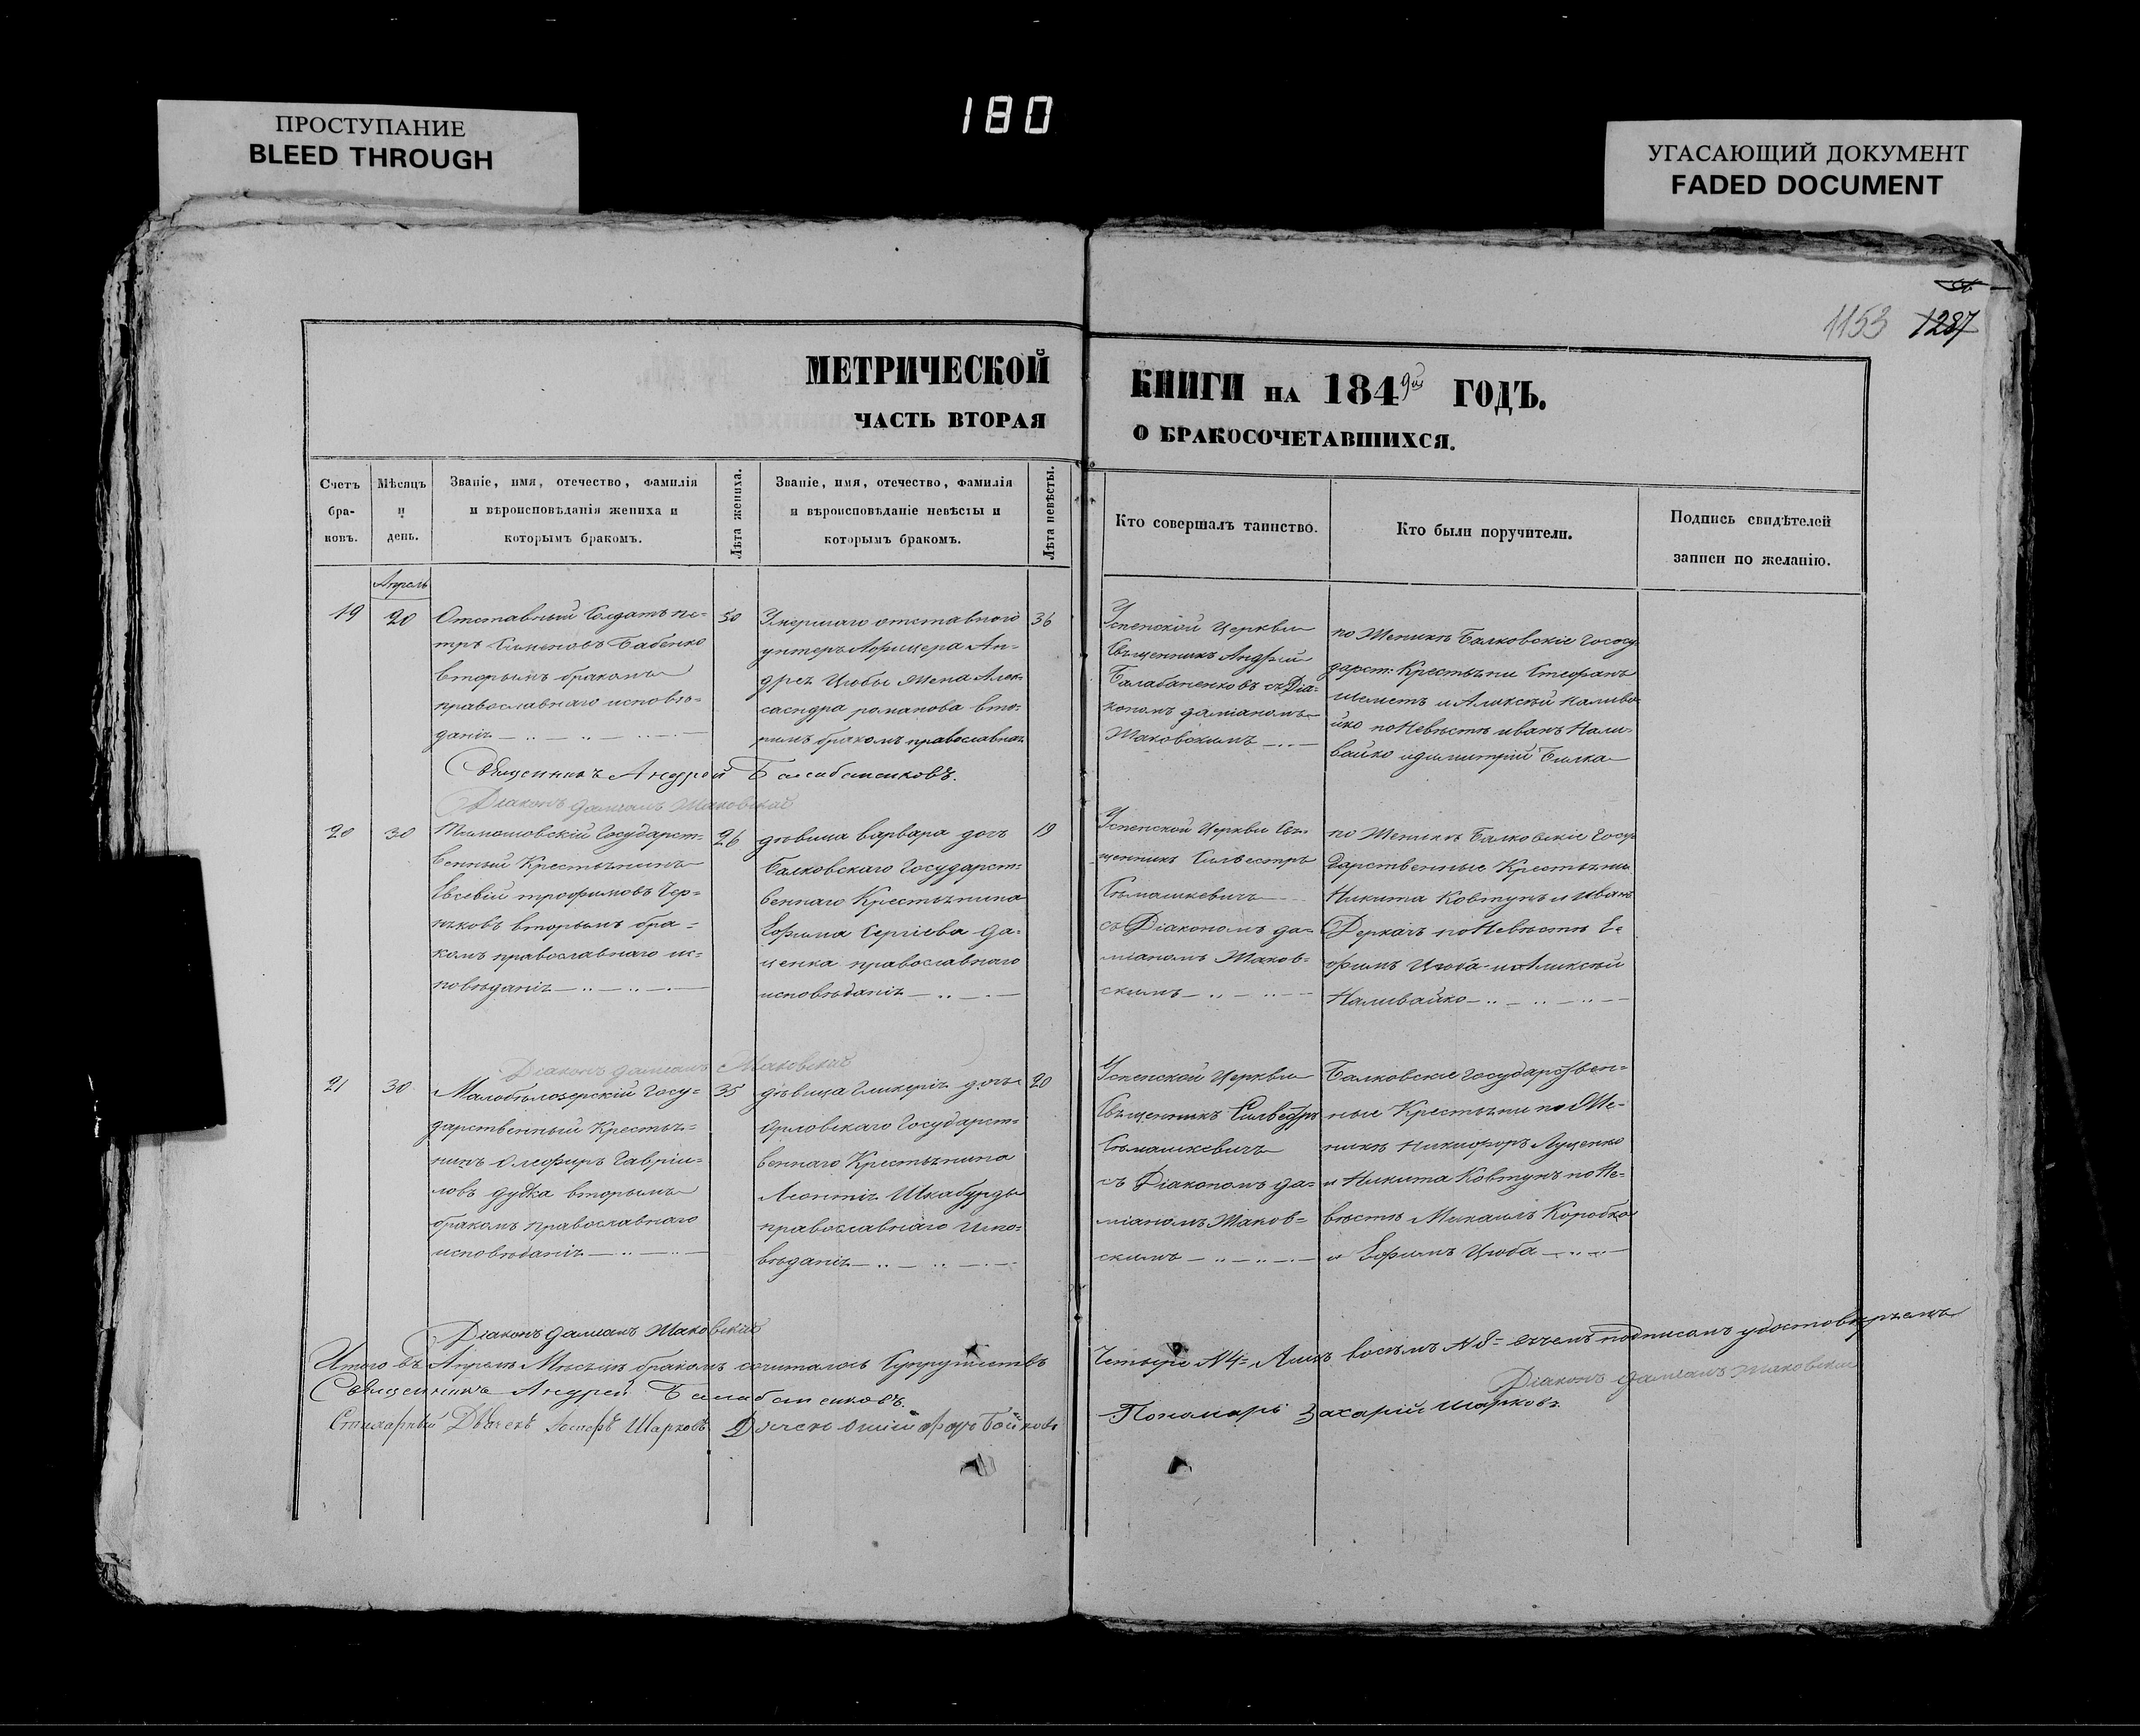 180
ПРОСТУПАНИЕ
BLEED THROUGH
УГАСАЮЩИЙ ДОКУМЕНТ
FADED DOCUMENT
1153 1287
МЕТРИЧЕСКОЙ
ЧАСТЬ ВТОРАЯ
КНИГИ на 1849й ГОДЪ.
О БРАКОСОЧЕТАВШИХСЯ.
Счетъ
бра-
ковъ.
Мѣсяцъ
и
день.
Званіе, имя, отечество, фамилія
и вѣроисповѣданія жениха и
которымъ бракомъ.
Лѣта жениха.
Званіе, имя, отечество, фамилія
и вѣроисповѣданіе невѣсты и
которымъ бракомъ.
Лѣта невѣсты.
Кто совершалъ таинство.
Кто были поручители.
Подпись свидѣтелей
записи по желанію.
Апрель
19
20
Отставный Солдатъ Пе-
тръ Сименовъ Бабенко
вторымъ бракомъ
православнаго исповѣ-
данія
50
Умершаго отставного
унтеръ Афицера Ан-
дрея Цюбы Жена Алек-
сандра романова вто-
рымъ бракомъ православнаго
36
Успенской Церкви
Священникъ Андрей
Балабаненковъ съ Діа-
кономъ даміаномъ
Маковскимъ
по Женихѣ Балковскіе Госу
дарст: Крестьяни Стефанъ
Шелестъ и Алексѣй Налива
йко по Невѣстѣ иванъ Нали-
вайко и димитрій Билка
Священникъ Андрей Балабаненковъ.
Діаконъ даміанъ Маковскій
20
30
Государст-
венный Крестьянинъ
Евсевій трофимовъ Чер-
няковъ вторымъ бра-
комъ православнаго ис-
повѣданія
26
дѣвица варвара дочь
Балковскаго Государст-
веннаго Крестьянина
Ефима Сергіева Да-
ценка православнаго
исповѣданія
19
Успенской Церкви Свя-
щенникъ Сильвестръ
Сѣмашкевичъ
съ Діакономъ да-
міаномъ Маков-
скимъ
по Женихѣ Балковскіе Госу
дарственные Крестьяни
Никита Ковтунъ и Иванъ
Деркачъ по Невѣстѣ Е-
фимъ Цюба и Алексѣй
Наливайко
Діаконъ даміанъ Маковскій
21
30
Малобѣлозерскій Госу-
дарственный Крестья-
нинъ Олефиръ Гаврии-
ловъ дудка вторымъ
бракомъ православнаго
исповѣданія
35
дѣвица Гликерія дочь
Орловскаго Государст-
веннаго Крестьянина
Леонтія Шкабурды
православнаго испо-
вѣданія
20
Успенской Церкви
Священникъ Сильвестръ
Сѣмашкевичъ
съ Діакономъ да-
міаномъ Маков-
скимъ
Балковскіе Государствен-
ные Крестьяни по Же-
нихѣ Никифоръ Луценко
и Никита Ковтунъ по Не-
вѣстѣ Михаилъ Коробка
и Ефимъ Цюба
Діаконъ даміанъ Маковскій
Итого въ Апрелѣ Мѣсяцѣ бракомъ сочиталось Супружествъ Четыре №4= Лицъ восемъ №8= вчемъ подписомъ удостовѣряемъ
Священникъ Андрей Балабаненковъ.
Діаконъ даміанъ Маковскій
Стихарный Дьячекъ Іосифъ Шарковъ
Пономарь Захарій Шарковъ